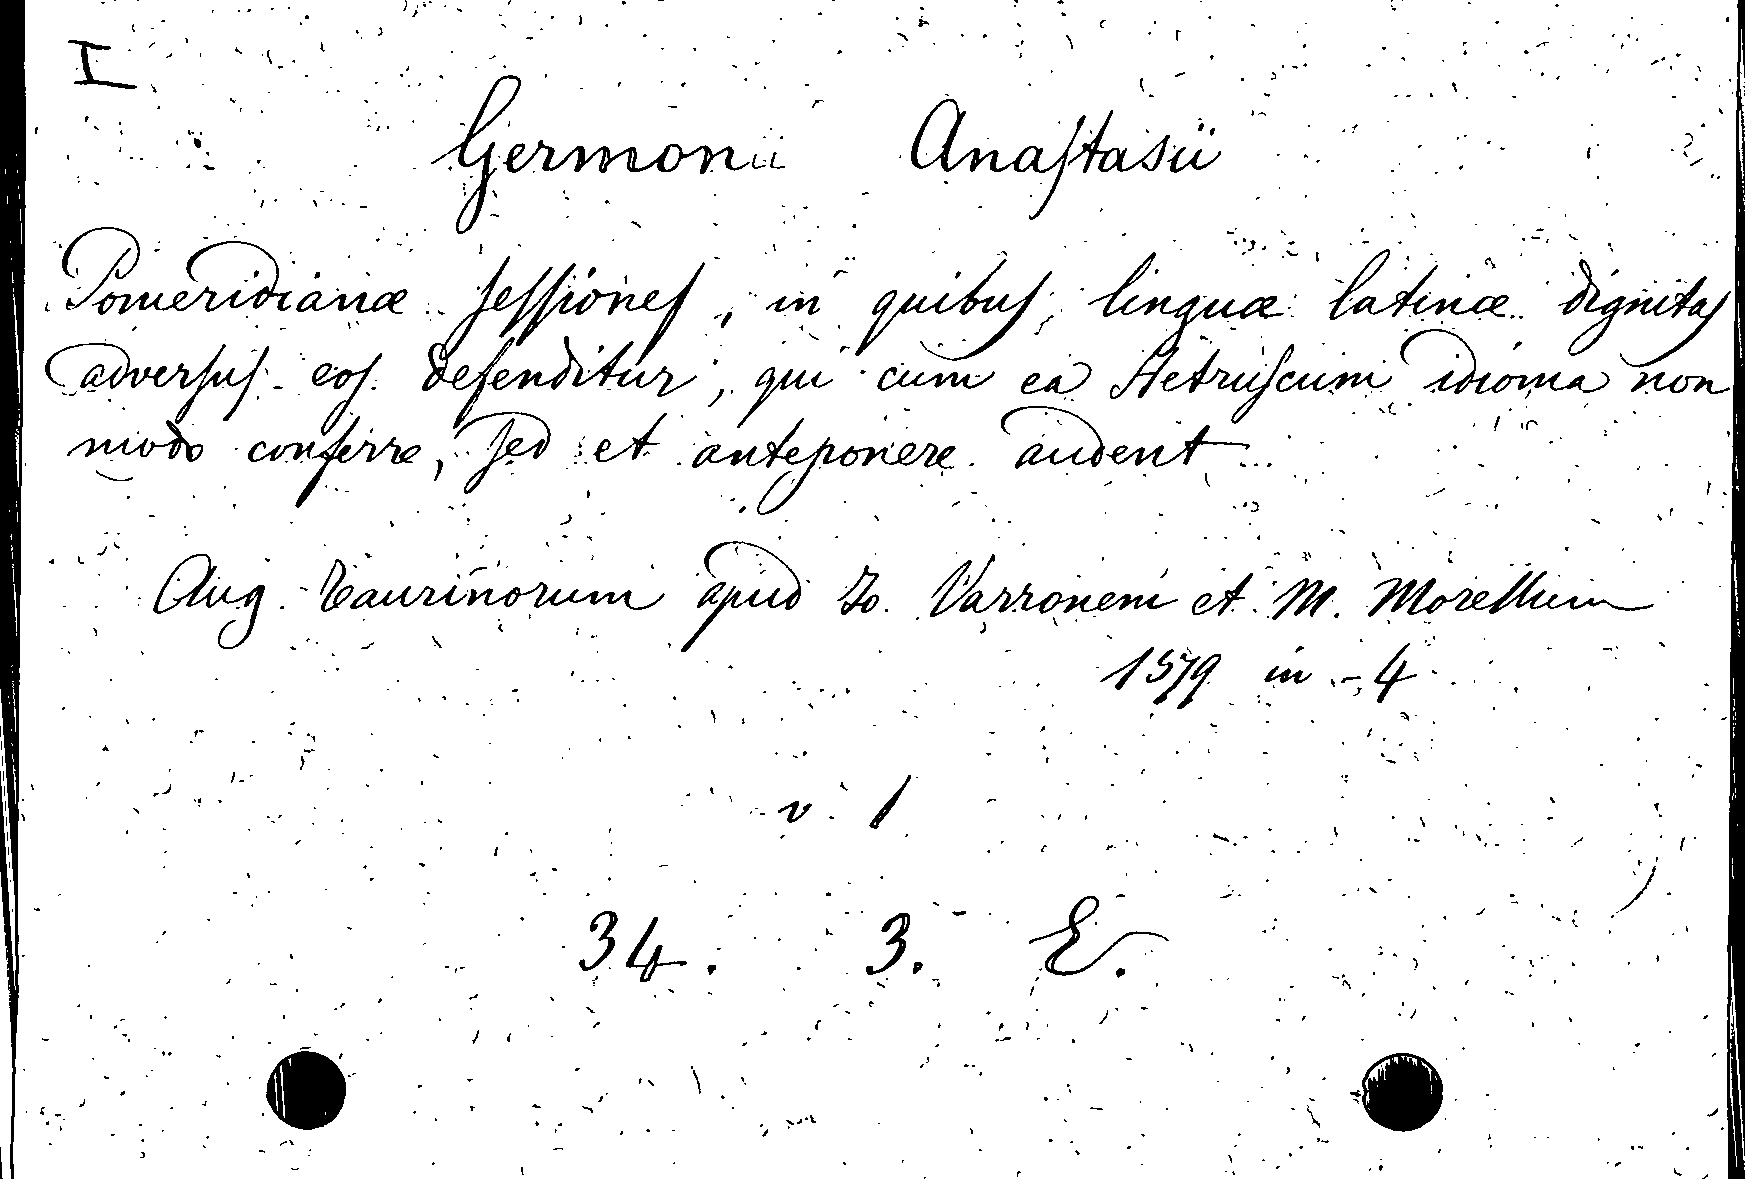 I
Germonii Anastasii
Pomeridianæ sessiones, in quibus, linguæ latinæ dignitas
adversus eos defenditur, qui cum ea Hetruscum idioma non
modo conferre, sed et anteponere audent
Aug. Taurinorum apud Io. Varronem et M. Morellum
1579 in-4
v. 1
34. 3. E.